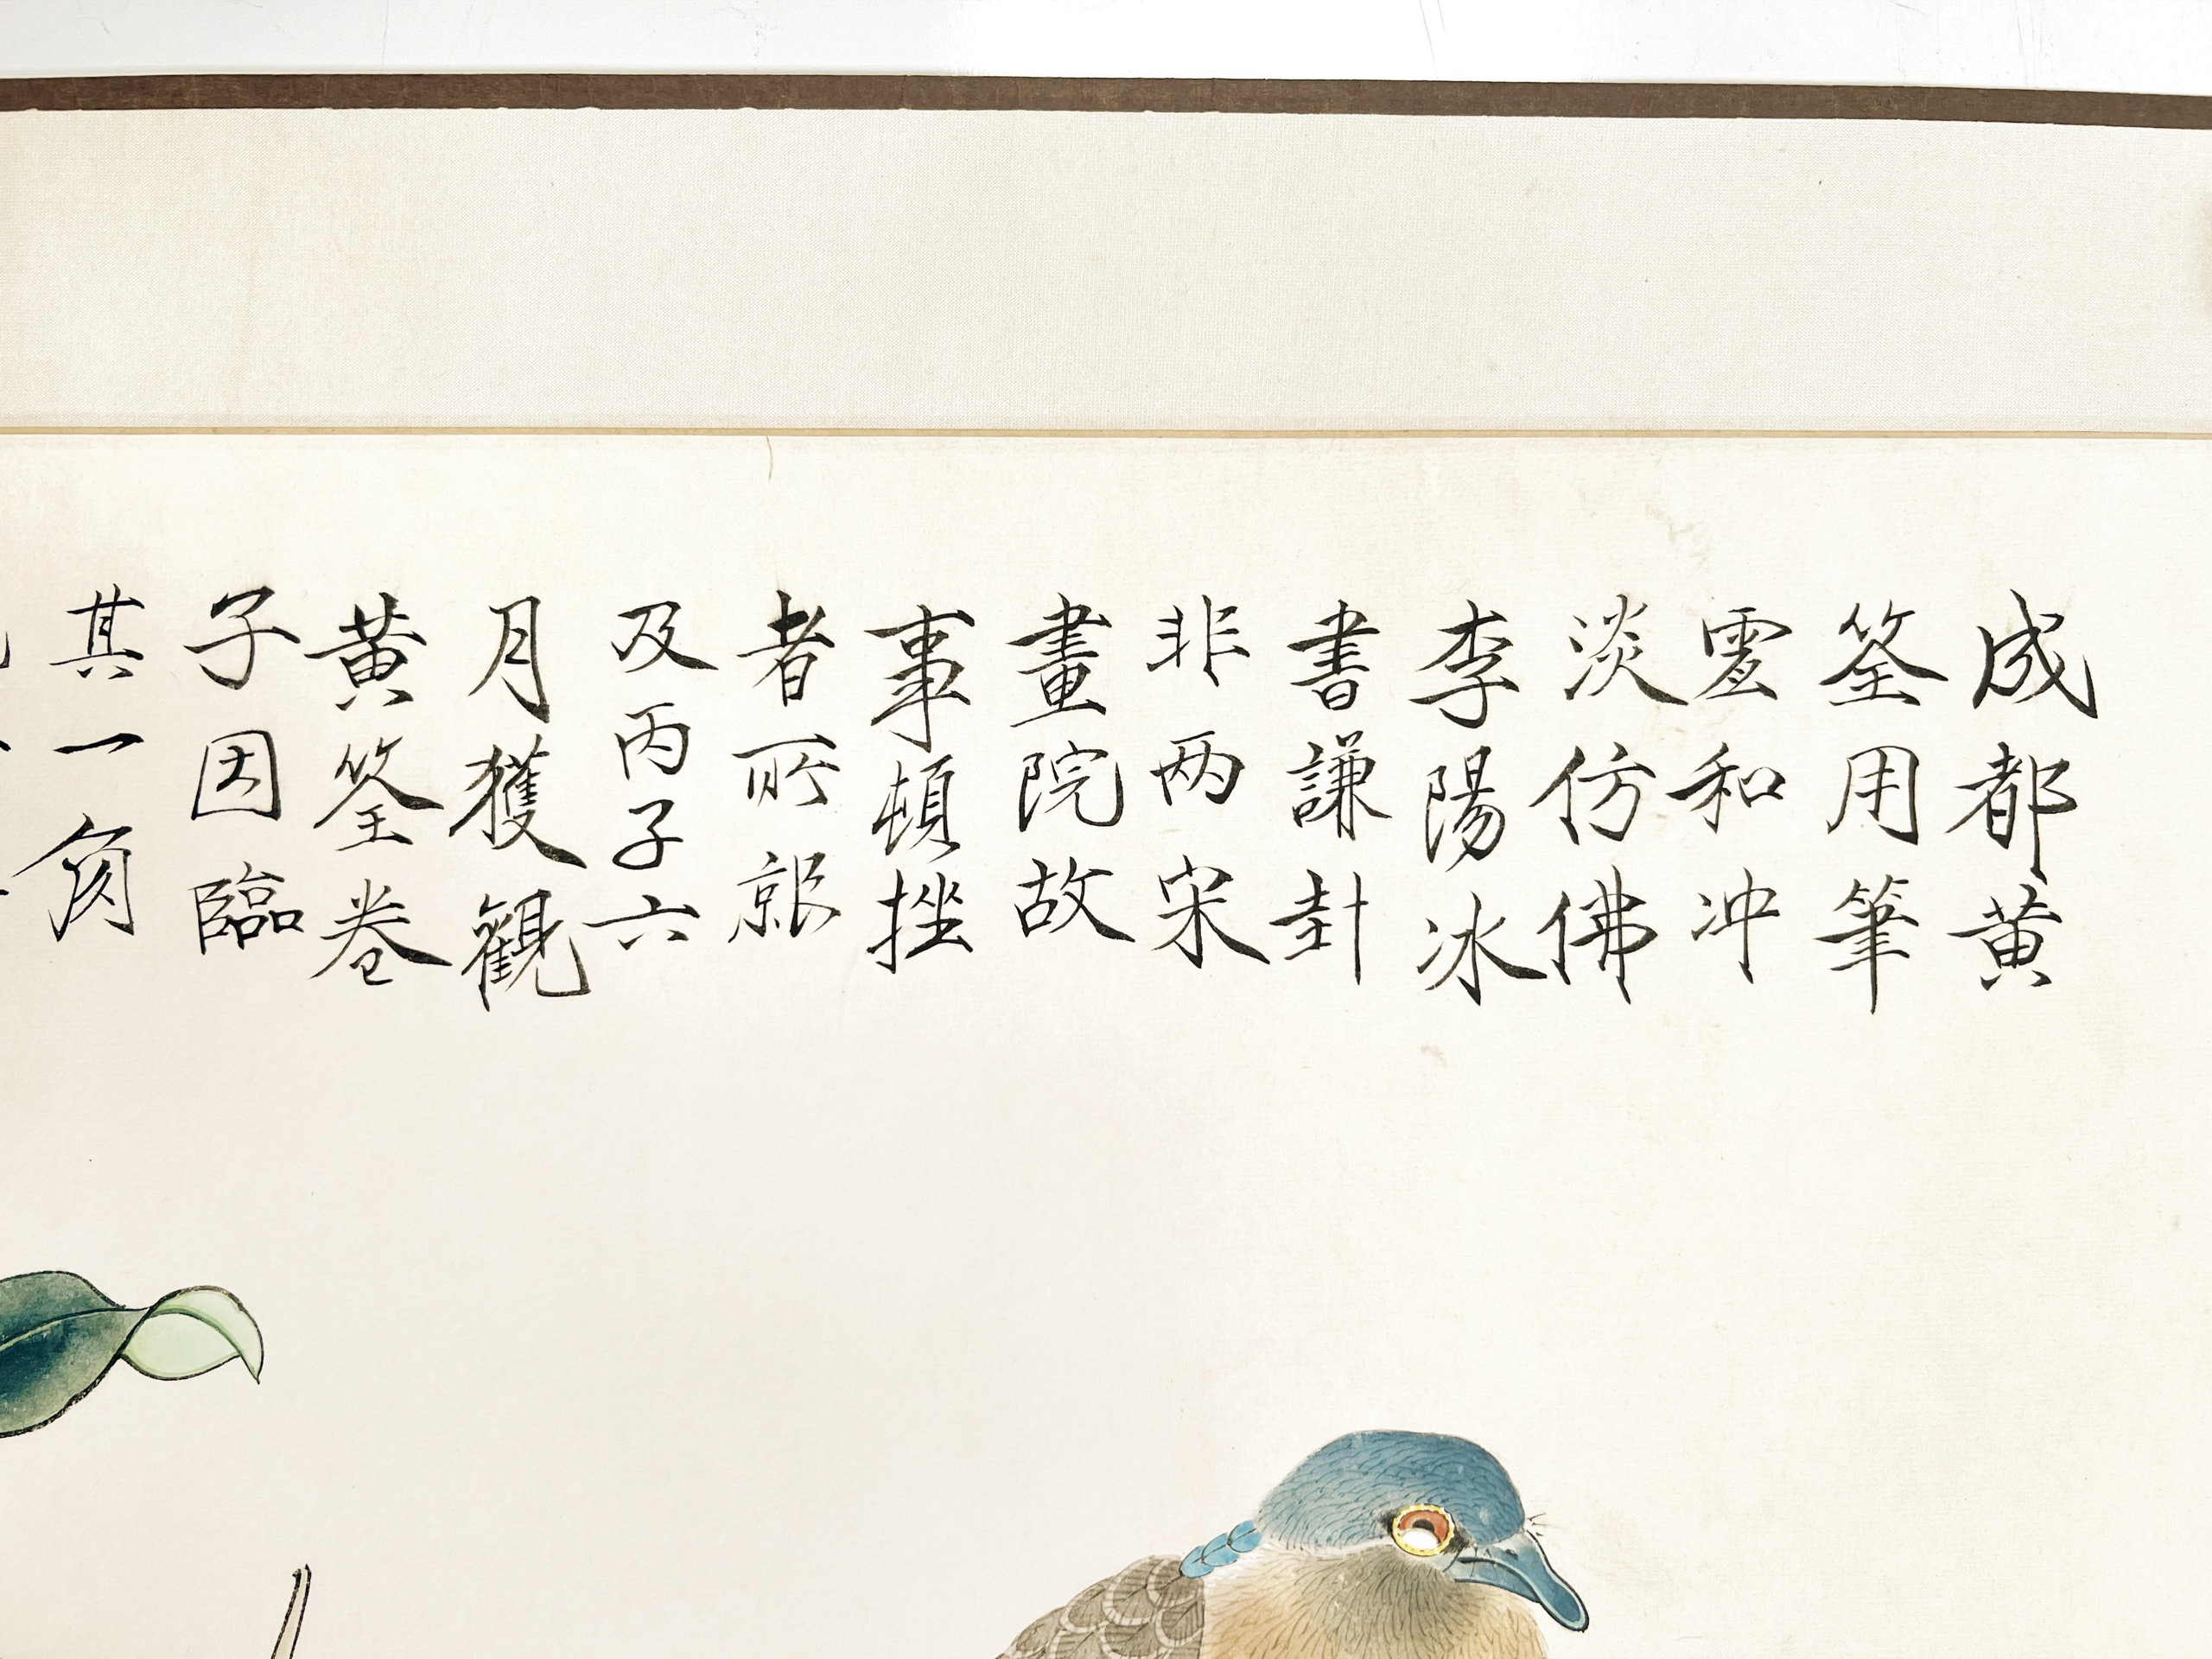 成都黄
筌用筆
虛和冲
淡仿佛
李陽冰
書謙卦
非两宋
畫院故
事頓挫
者所能
及丙子六
月獲觀
黄筌卷
子因臨
其一角